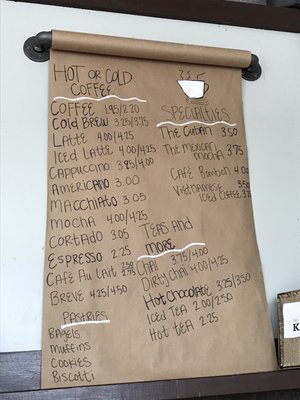 HOT OR COLD
COFFEE
COFFEE 1.95/2.20
COLD BREW 3.25/3.75
LATTE 4.00/4.25
ICED LATTE 4.00/4.25
CAPPUCCINO 3.95/4.00
AMERICANO 3.00
MACCHIATO 3.05
MOCHA 4.00/4.25
CORTADO 3.05
ESPRESSO 2.25
CAFÉ AU LAIT
BREVE 4.25/4.50
PASTRIES
BAGELS
MUFFINS
COOKIES
BISCOTTI
SPECIALTIES
THE CUBAN 3.50
THE MEXICAN
MOCHA 3.75
CAFÉ BOMBON 4.00
VIETNAMESE 3.50
ICED COFFEE 3.75
TEAS AND
MORE
CHAI 3.75/4.00
DIRTY CHAI 4.00/4.25
HOT CHOCOLATE 3.25/3.50
ICED TEA 2.00/2.50
HOT TEA 2.25
K